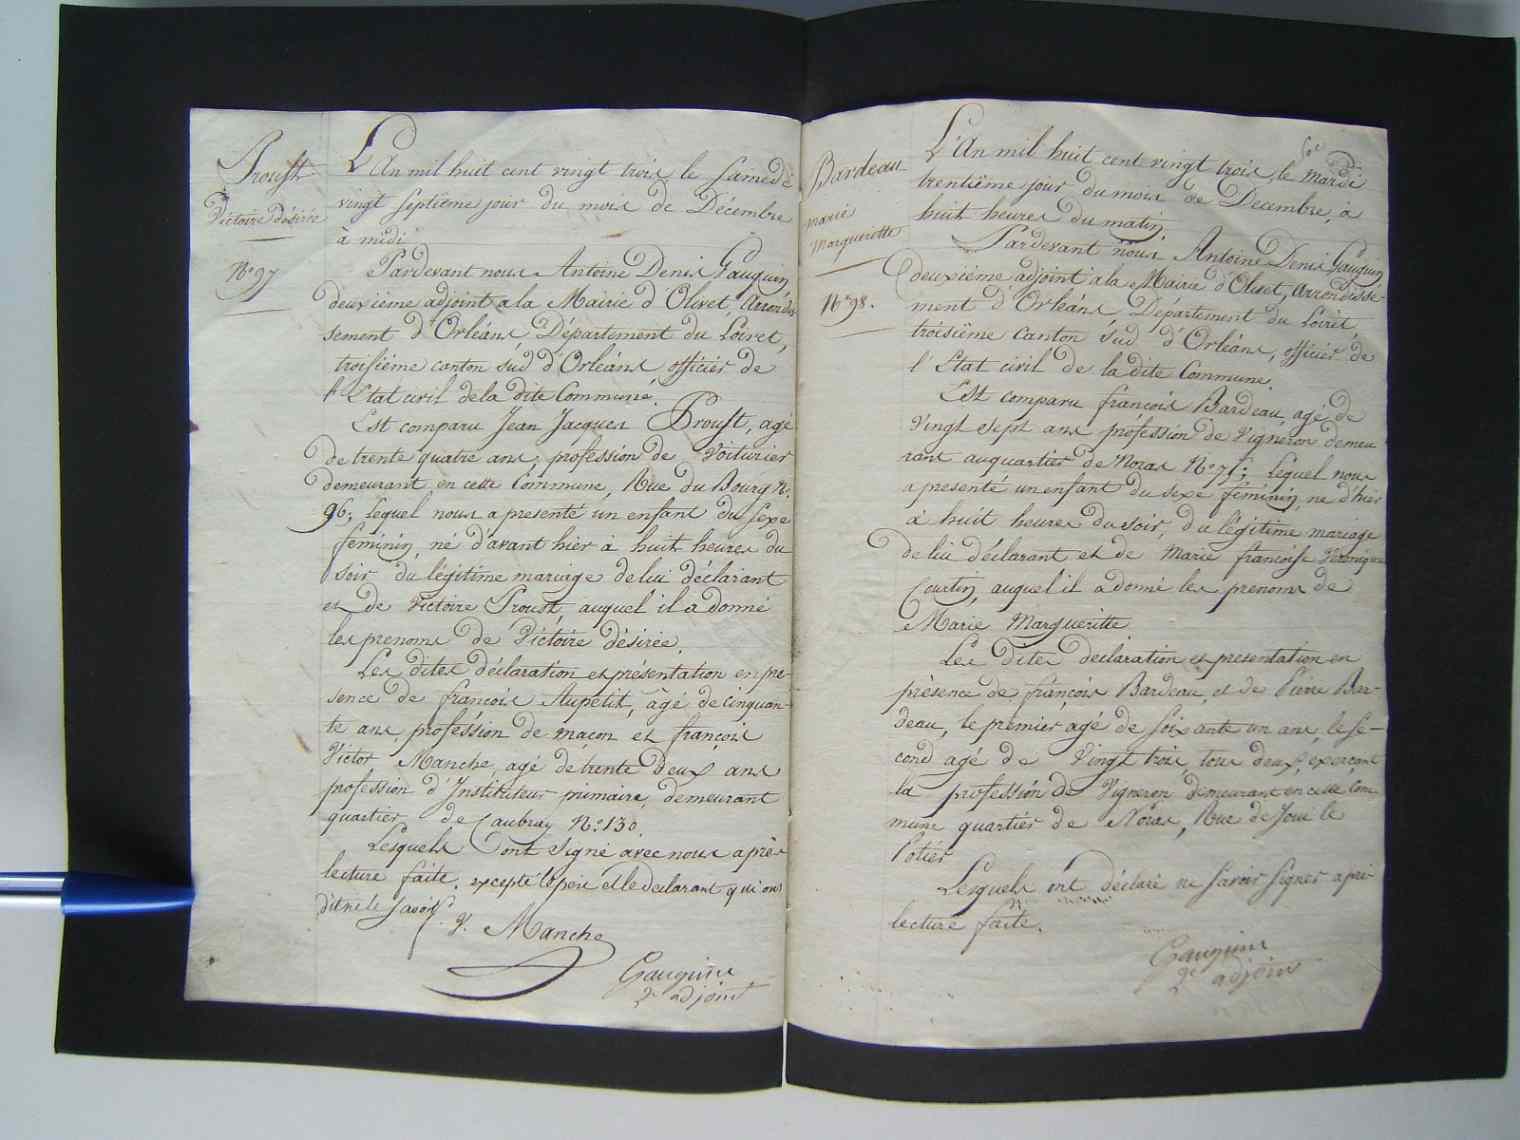 Proust
Victoire désirée
N° 97
L'An mil huit cent vingt trois le Samedi
vingt septième jour du mois de Décembre
à midi
Pardevant nous Antoine Denis Gauguin
deuxième adjoint a la Mairie d'Olivet, Arrondis
sement d'Orléans, Département du Loiret,
troisième canton sud d'Orléans officier de
l'Etat civil de la dite Commune.
Est comparu Jean Jacques Proust, agé
de trente quatre ans, profession de Voiturier
demeurant en cette Commune, Rue du Bourg N.
96; lequel nous a presenté un enfant du sexe
féminin, né d'avant hier à huit heures du
soir du légitime mariage de lui déclarant
et de Victoire Proust, auquel il a donné
les prenoms de Victoire désirée.
Les dites déclaration et présentation en pre-
sence de françois Aupetit, âgé de cinquan-
te ans profession de maçon et françois
Victor Manche, agé de trente deux ans
profession d'Instituteur primaire, demeurant
quartier de Caubray N° 130.
Lesquels ont signé avec nous après
lecture faite. excepté le pere et le declarant qui ont
dit ne le savoir.
V. Manche
Gauguin
2e adjoint
Bardeau
marie
Margueritte
N° 98.
L'An mil huit cent vingt trois, le mardi
trentième jour du mois de Decembre, à
huit heures du matin.
Pardevant nous Antoine Denis Gauguin
deuxième adjoint a la Mairie d'Olivet, Arrondisse-
ment d'Orléans, Département du Loiret,
troisième canton Sud d'Orléans, officier de
l'Etat civil de la dite Commune.
Est comparu françois Bardeau, agé de
Vingt sept ans profession de Vigneron demeu
rant au quartier de Noras N° 71; lequel nous
a presenté un enfant du sexe féminin, né d'hier
à huit heures du soir, du légitime mariage
de lui déclarant et de Marie françoise Veronique
Courtin, auquel il a donné les prenoms de
Marie Margueritte
Les dites déclaration et presentation en
présence de françois Bardeau, et de Pierre Bar-
deau, le premier agé de soixante un ans, le se-
cond agé de Vingt trois, tous deux exerçant
la profession de Vigneron demeurant en cette Com
mune quartier de Noras, Rue de Joui le
Potier
Lesquels ont déclaré ne savoir signer après
lecture faite.
Gauguin
2e adjoint